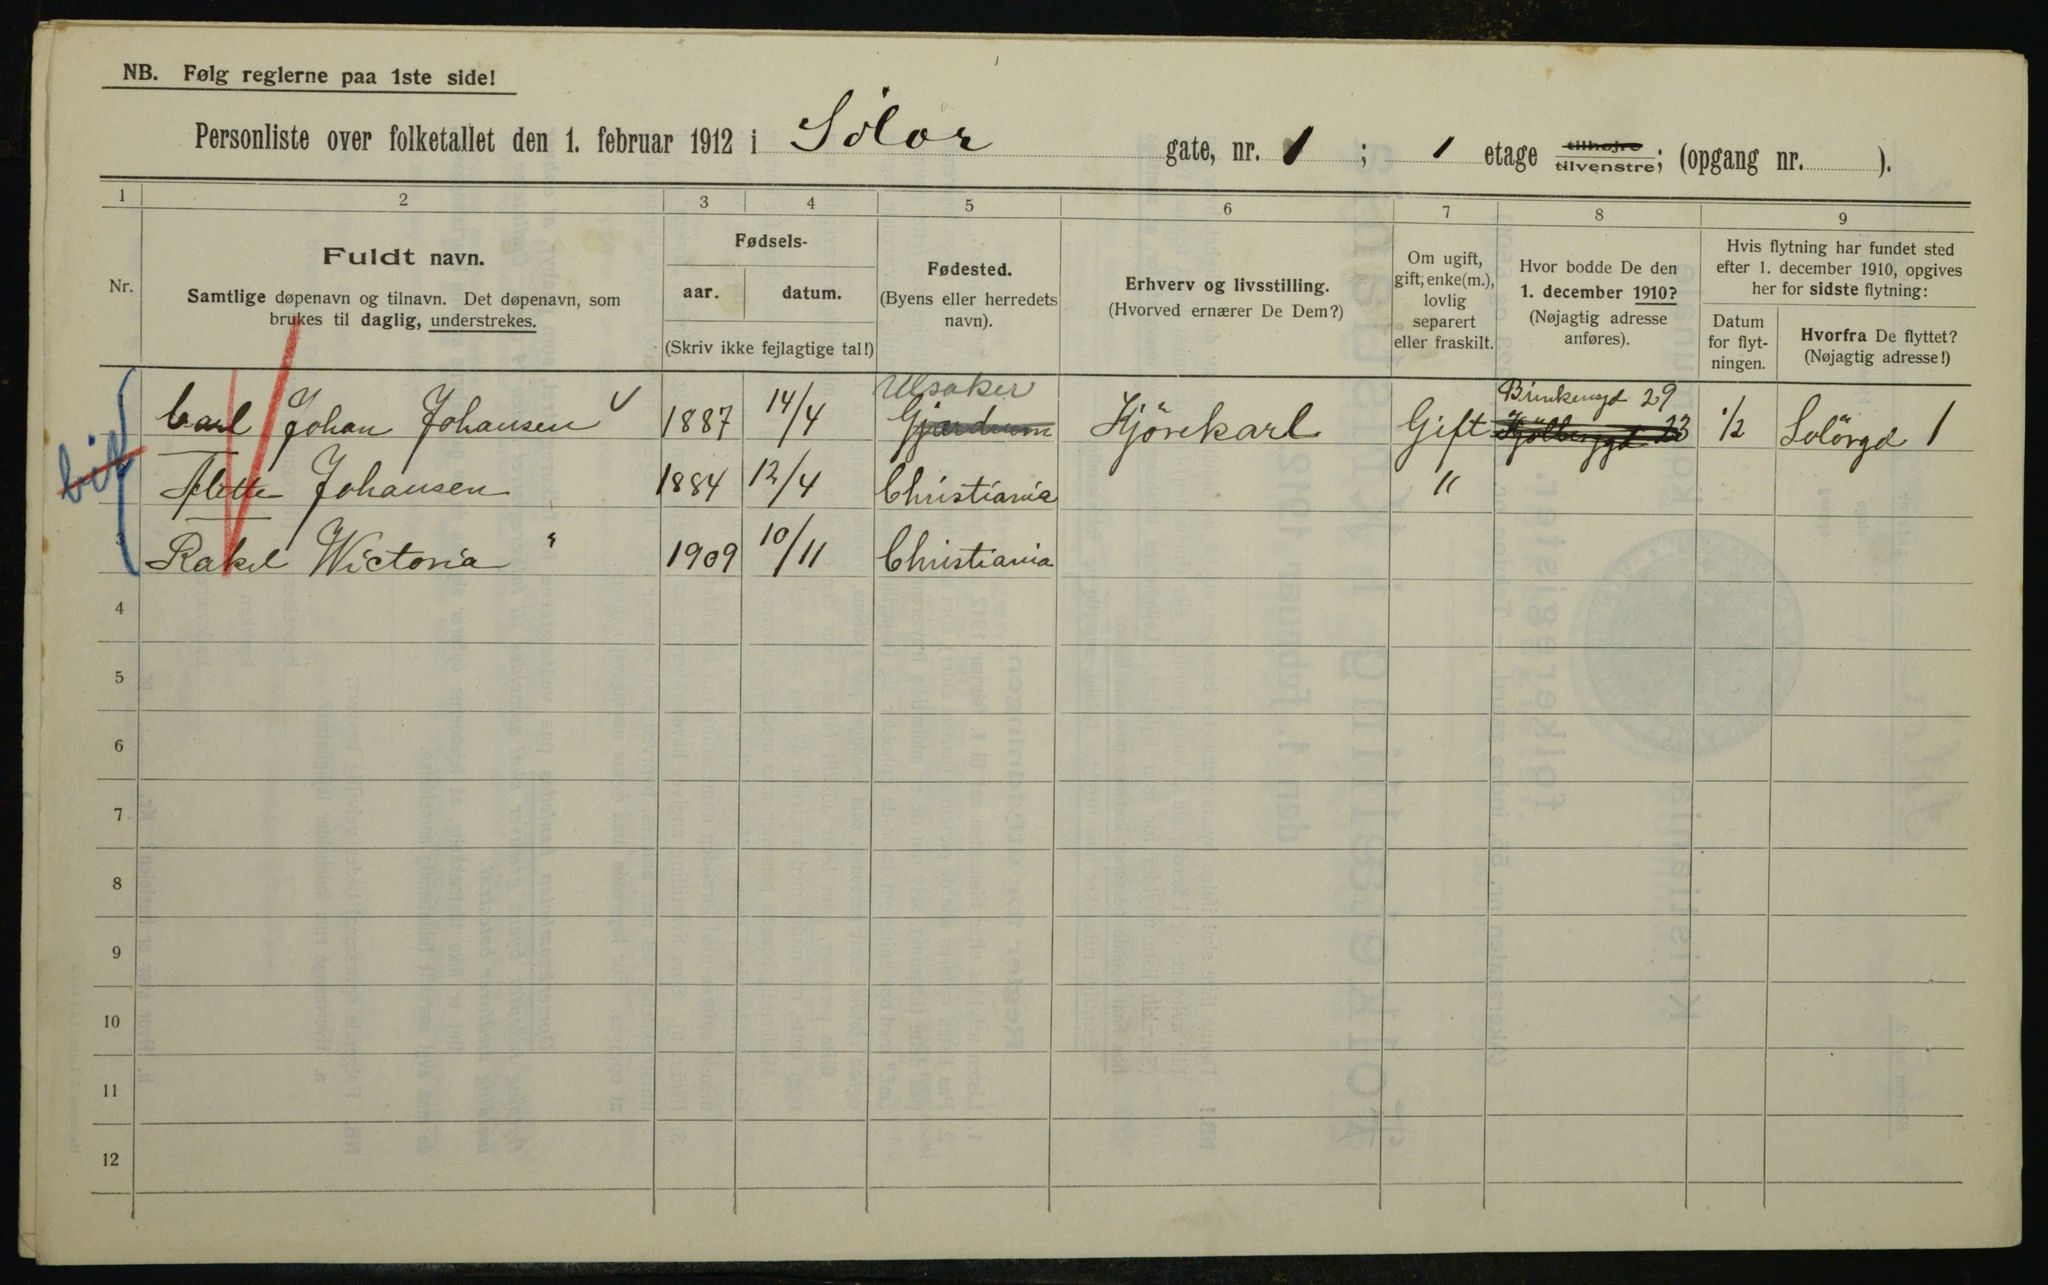 NB. Følg reglerne paa 1ste side!
Personliste over folketallet den 1. februar 1912 i Solør gate, nr. 1 ; 1 etage tilhøjre tilvenstre; (opgang nr. ).
1 2 3 4 5 6 7 8 9
Nr.
Fuldt navn.
Samtlige døpenavn og tilnavn. Det døpenavn, som
brukes til daglig, understrekes.
Fødsels-
aar. datum.
(Skriv ikke fejlagtige tal!)
Fødested.
(Byens eller herredets
navn).
Erhverv og livsstilling.
(Hvorved ernærer De Dem?)
Om ugift,
gift, enke(m.),
lovlig
separert
eller fraskilt.
Hvor bodde De den
1. december 1910?
(Nøjagtig adresse
anføres).
Hvis flytning har fundet sted
efter 1. december 1910, opgives
her for sidste flytning:
Datum
for flyt-
ningen.
Hvorfra De flyttet?
(Nøjagtig adresse!)
Ulsaker Brinkengd 29
Carl Johan Johansen 1887 14/4 Gjerdrum Kjørekarl Gift 23 1/2 Solörgd 1
Mette Johansen 1884 12/4 Christiania "
3 Rakel Wictoria " 1909 10/11 Christiania
4
5
6
7
8
9
10
11
12